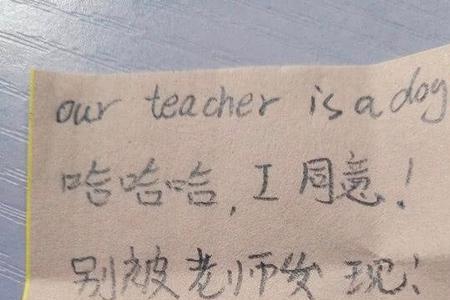 our teacher is a dog
哈哈哈,I 同意!
别被老师发现!